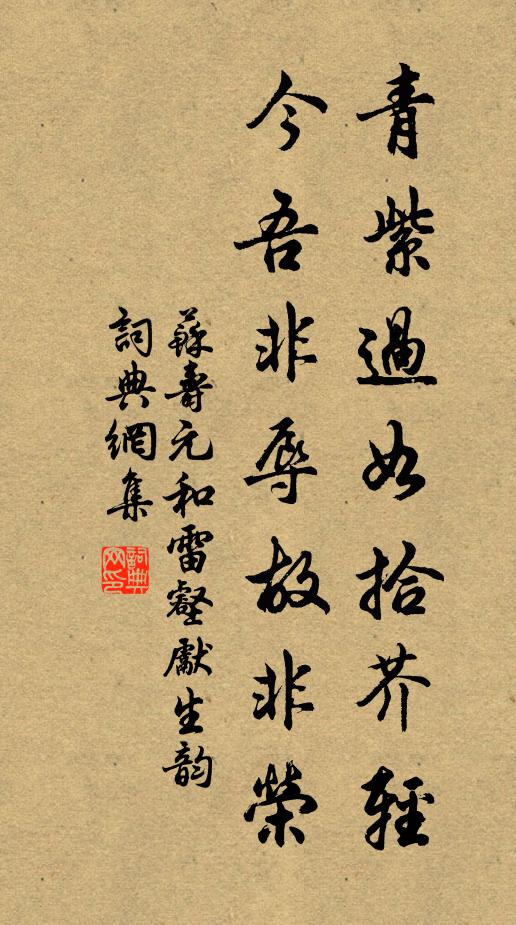 青紫過如拾芥輕
今吾非辱故非榮
蘇壽元和雷壑獻生韵
詞典網集
詞典网印